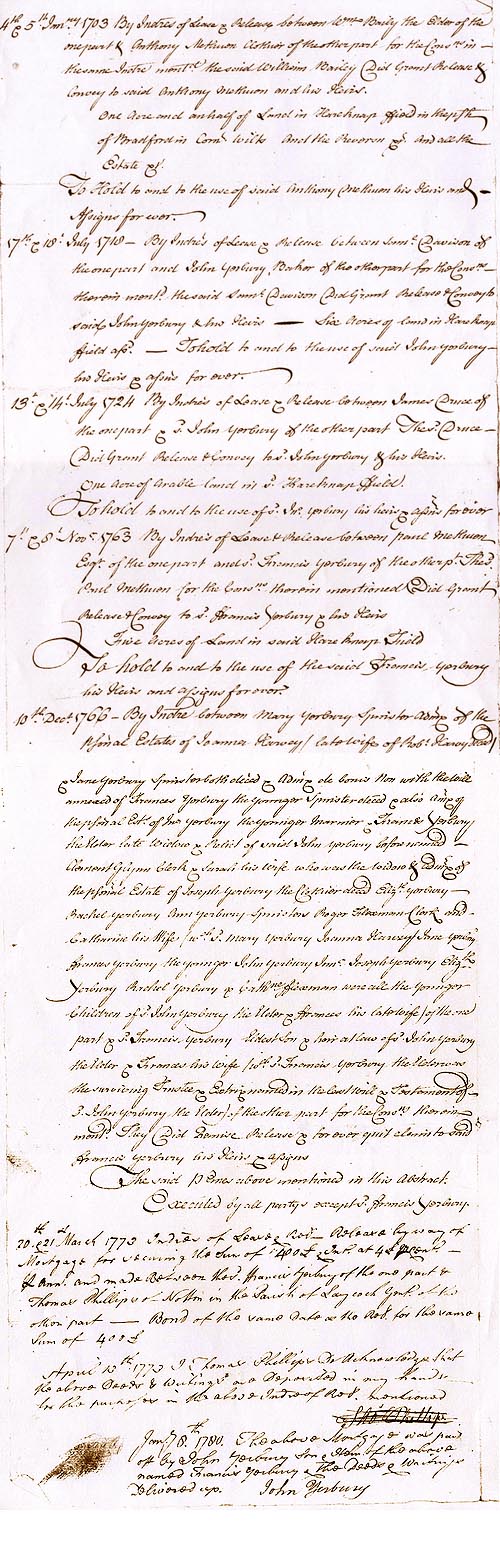 4th & 5th Janry 1703 By Indres of Lease & Release between Wm Baily the Elder of the
one part & Anthony Methuen Clothier of the other part for the Cons in
the same Indre mentd the said William Baily Did Grant Release &
Convey to said Anthony Methuen and his Heirs.
One Acre and an half of Land in Hareknap ffield in the psh
of Bradford in Com Wilts And the Reverson &c And all the
Estate &c
To Hold to and to the use of said Anthony Methuen his Heirs and
Assigns for ever.
17th & 18th July 1718 By Indres of Lease & Release between Saml Davison of
the one part and John Yerbury Baker of the other part for the Cons
therein mentd the said Saml Davison Did Grant Release & Convey to
said John Yerbury & his Heirs Six Acres of land in Hareknap
ffield afs. To hold to and to the use of said John Yerbury
his Heirs & assns for ever.
13th & 14th July 1724 By Indres of Lease & Release between James Druce of
the one part & sd John Yerbury of the other part The sd Druce
Did Grant Release & Convey to sd John Yerbury & his Heirs.
One Acre of Arable land in sd Hareknap ffield.
To hold to and to the use of sd Jn. Yerbury his heirs & assns for ever
7th & 8th Novr 1763 By Indres of Lease & Release between Paul Methuen
Esqr of the one part and sd Francis Yerbury of the other pt The sd
Paul Methuen for the Cons therein mentioned Did Grant
Release & Convey to sd ffrancis Yerbury & his Heirs
Five Acres of Land in said Hare Knap Field
To hold to and to the use of the said Francis Yerbury
his Heirs and Assigns for ever
10th Decr 1766 By Indre between Mary Yerbury Spinster Admx of the
psonal Estates of Joanna Harvey (late wife of Robt Harvey decd)
& Jane Yerbury Spinster both deced & Admx de bonis Non with the Will
annexed of Frances Yerbury the Younger Spinster deced & also Admx of
the psonal Est. of Jno Yerbury the Younger Mariner Frances Yerbury
the Elder late Widow & Relict of said John Yerbury before named
Clement Glynn Clerk & Sarah his Wife who was the Widow & Admx of
the psonal Estate of Joseph Yerbury the Clothier decd Elizth Yerbury
Rachel Yerbury Ann Yerbury Spinsters Roger Flexman Clerk and
Catharine his Wife (wch sd Mary Yerbury Joanna Harvey Jane Yerbury
ffrances Yerbury the Younger John Yerbury Junr Joseph Yerbury Elizth
Yerbury Rachel Yerbury & Cathne fflexman were all the Younger
Children of sd John Yerbury the Elder & Frances his late wife) of the one
part & sd Francis Yerbury Eldest Son & heir at law of sd John Yerbury
the Elder & Frances his wife (wch sd Frances Yerbury the Elder was
the surviving Trustee & Extrix named in the last Will & Testament of
sd John Yerbury the Elder) of the other part for the Cons therein
mentd They Did Remise Release & for ever quit claim to said
ffrancis Yerbury his Heirs & Assigns
The said Pmes above mentioned in this Abstract.
Executed by all partys except sd ffrancis Yerbury.
20th & 21st March 1773 Indres of Lease & Rel. Release by way of
Mortgage for securing the Sum of 400£ & Int. at 4£ pCent
p Ann. and made Between the sd ffrancis Yerbury of the one part &
Thomas Phillips of in the Parish of Laycock Gent. of the
other part Bond of the same Date as the Rel. for the same
Sum of 400£
April 13th 1773 I Thomas Phillips Do Acknowledge that
the above Deeds & Writings are Deposited in my hands
for the purposes in the above Indre of Rel. mentioned
Tho Phillips
Jany 8th 1780. The above Mortgage was paid
off by John Yerbury Son & Heir of the above
named Francis Yerbury & The Deeds & Writings
Delivered up. John Yerbury